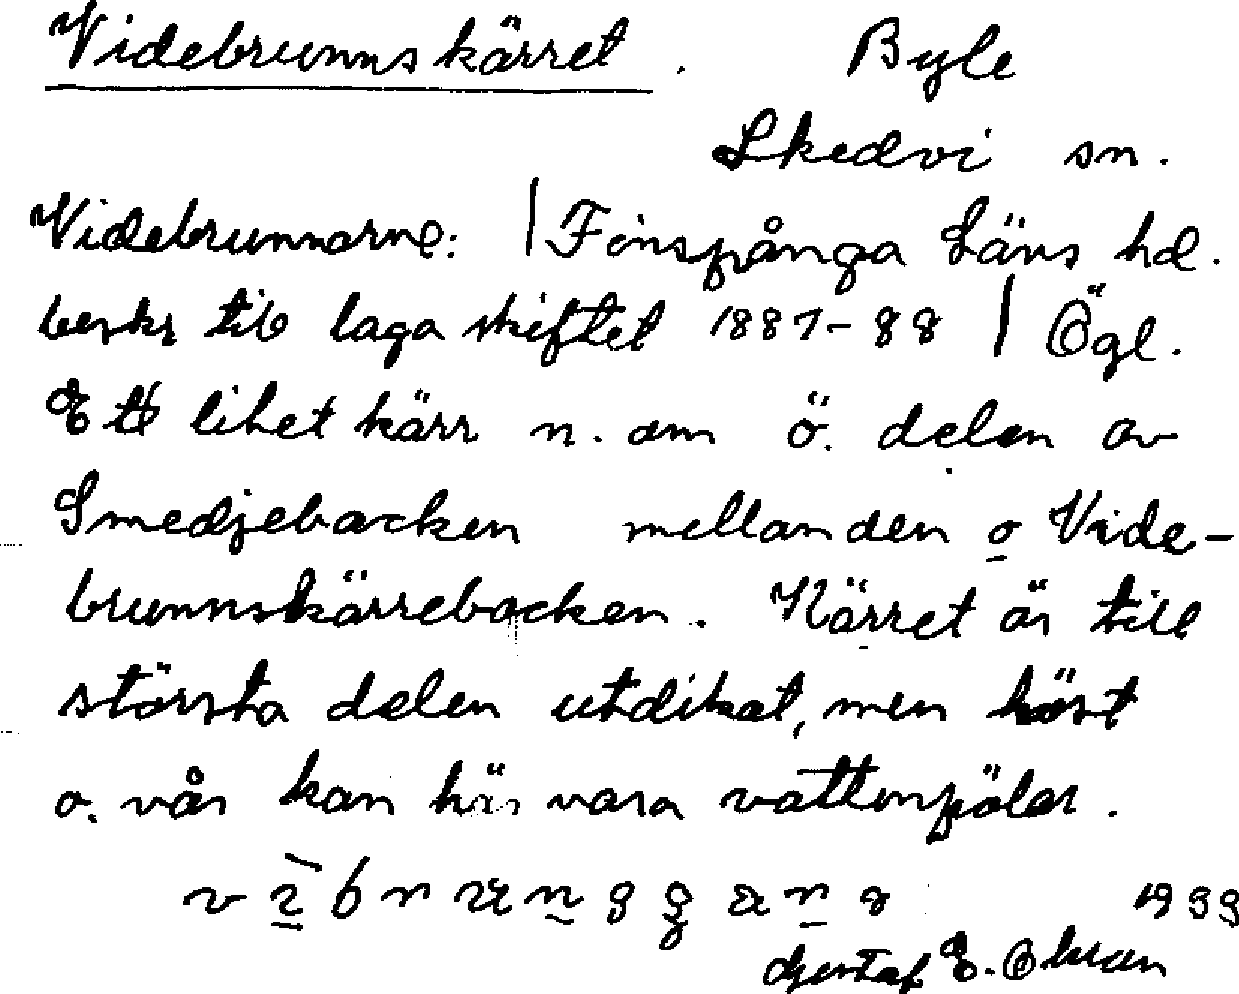 Videbrunnskärret. Byle
Skedvi sn.
Videbrunnarne: | Finspånga Läns hd.
beskr till laga skiftet 1887-88 | Ögl.
Ett litet kärr n. om ö. delen av
Smedjebacken mellan den o Vide-
brunnskärrebacken. Kärret är till
största delen utdikat, men höst
o. vår kan här vara vattenpölar.
1933
Gustaf E.